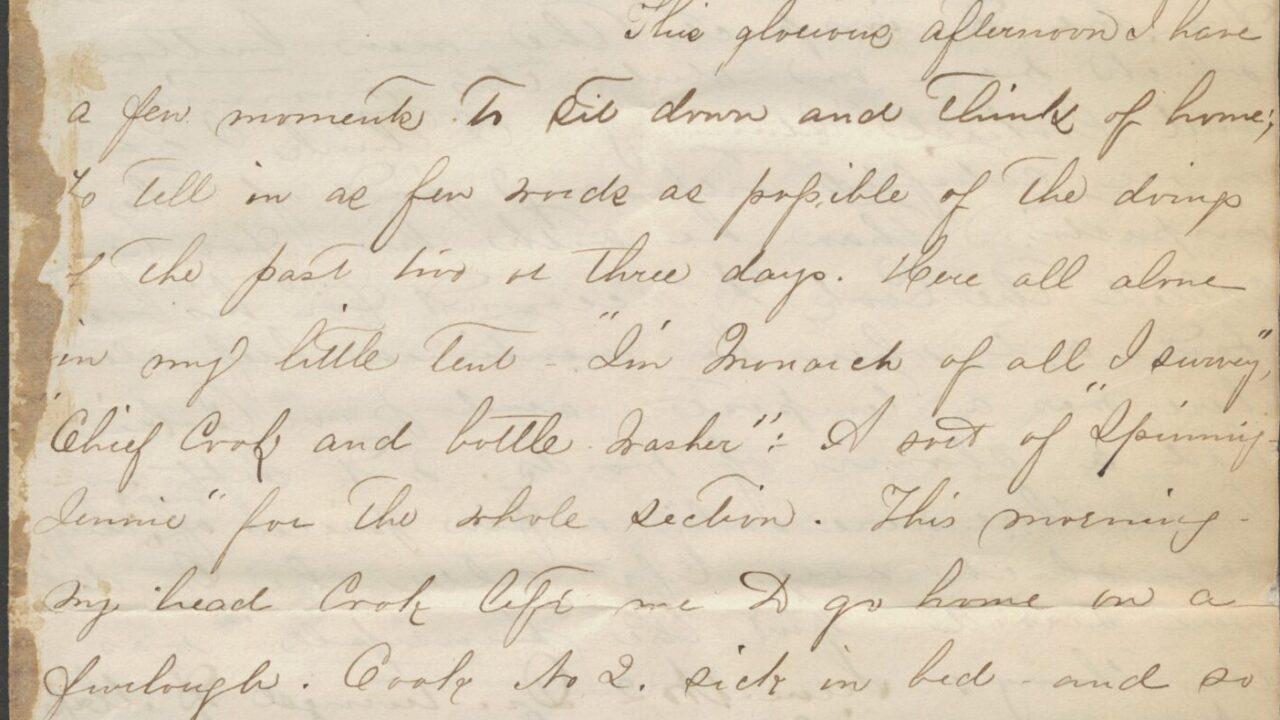 This glorious afternoon I have
a few moments to sit down and think of home;
to tell in as few words as possible of the doings
of the past two or three days. Here all alone
in my little tent - "I'm Monarch of all I survey",
"Chief Cook and bottle washer": A sort of "Spinning-
Jennie" for the whole section. This morning-
my head Cook left me to go home on a
furlough. Cook No 2. sick in bed - and so